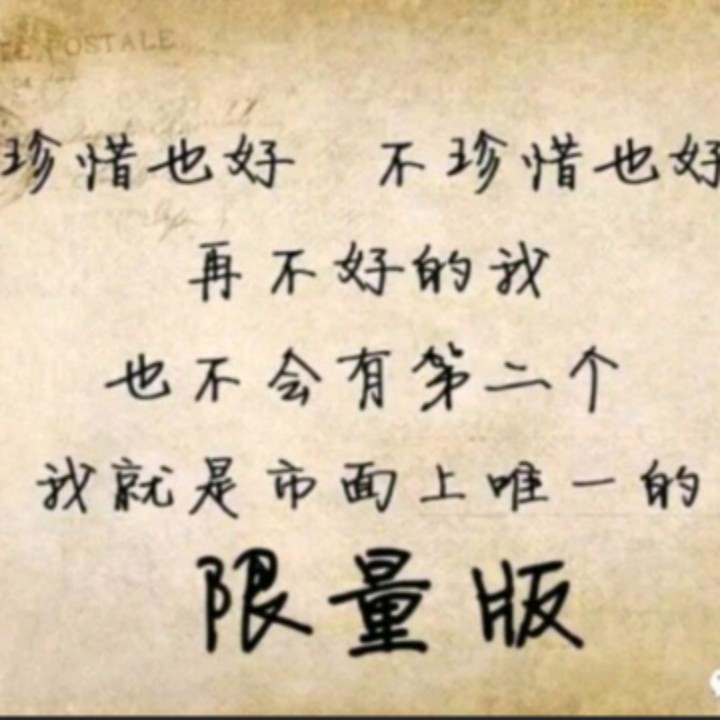 POSTALE
珍惜也好 不珍惜也好
再不好的我
也不会有第二个
我就是市面上唯一的
限量版